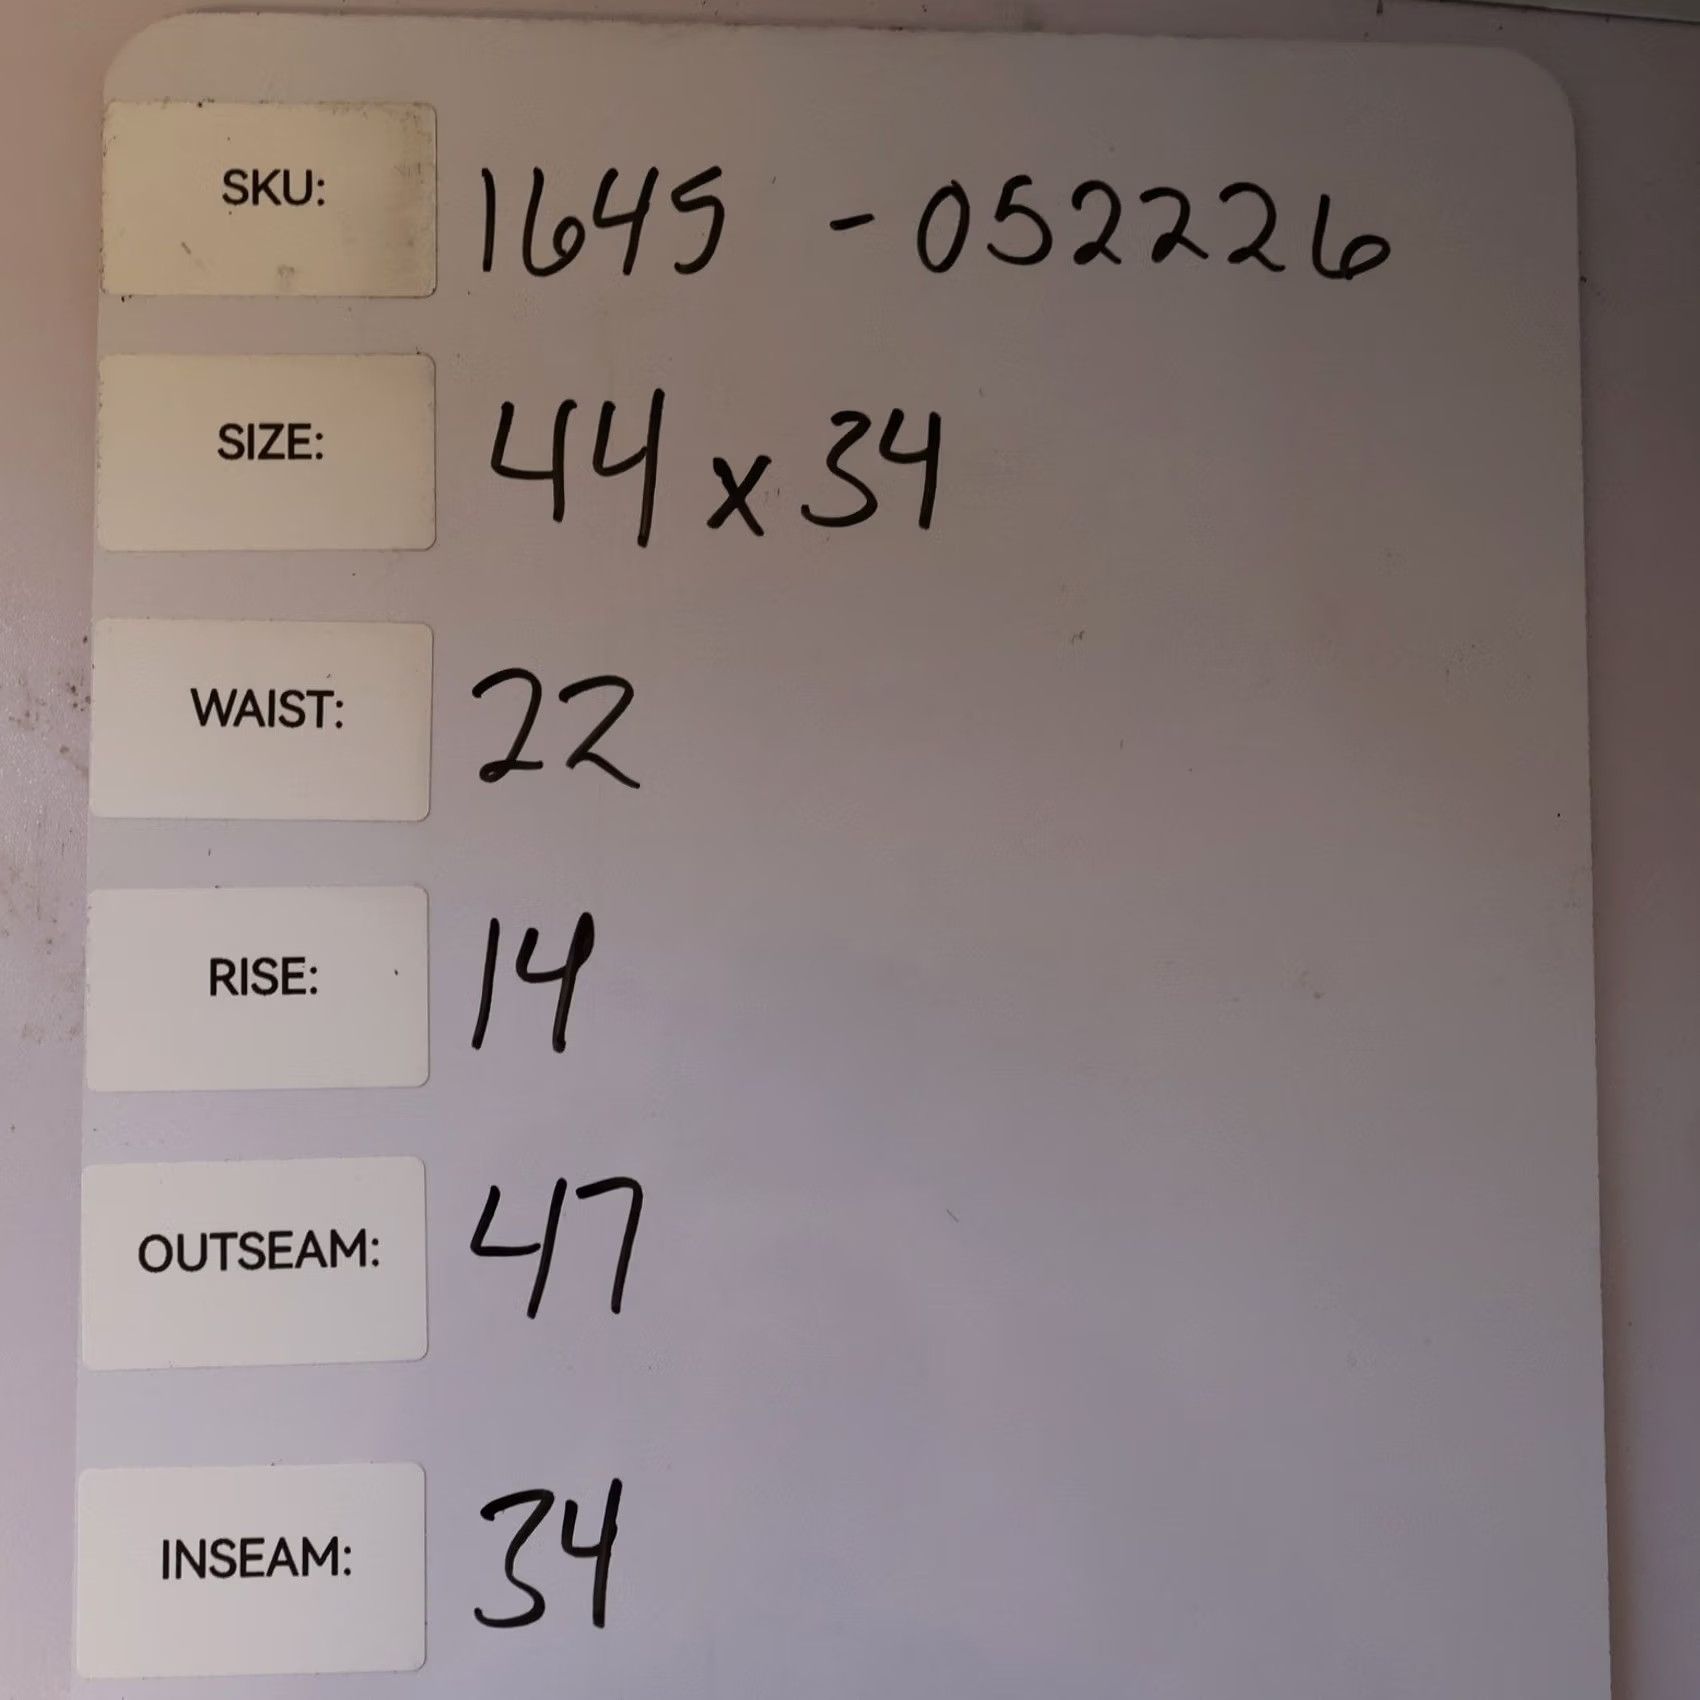 SKU: 1645 - 052226
SIZE: 44 x 34
WAIST: 22
RISE: 14
OUTSEAM: 47
INSEAM: 34